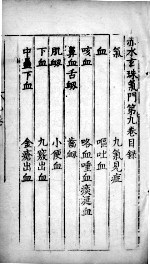 赤水玄珠氣門第九卷目錄
氣 九氣見症
血 嘔吐血
咳血 咯血唾血痰涎血
鼻血舌衄 齒衄
肌衄 小便血
下血 九竅出血
中蠱下血 金瘡出血